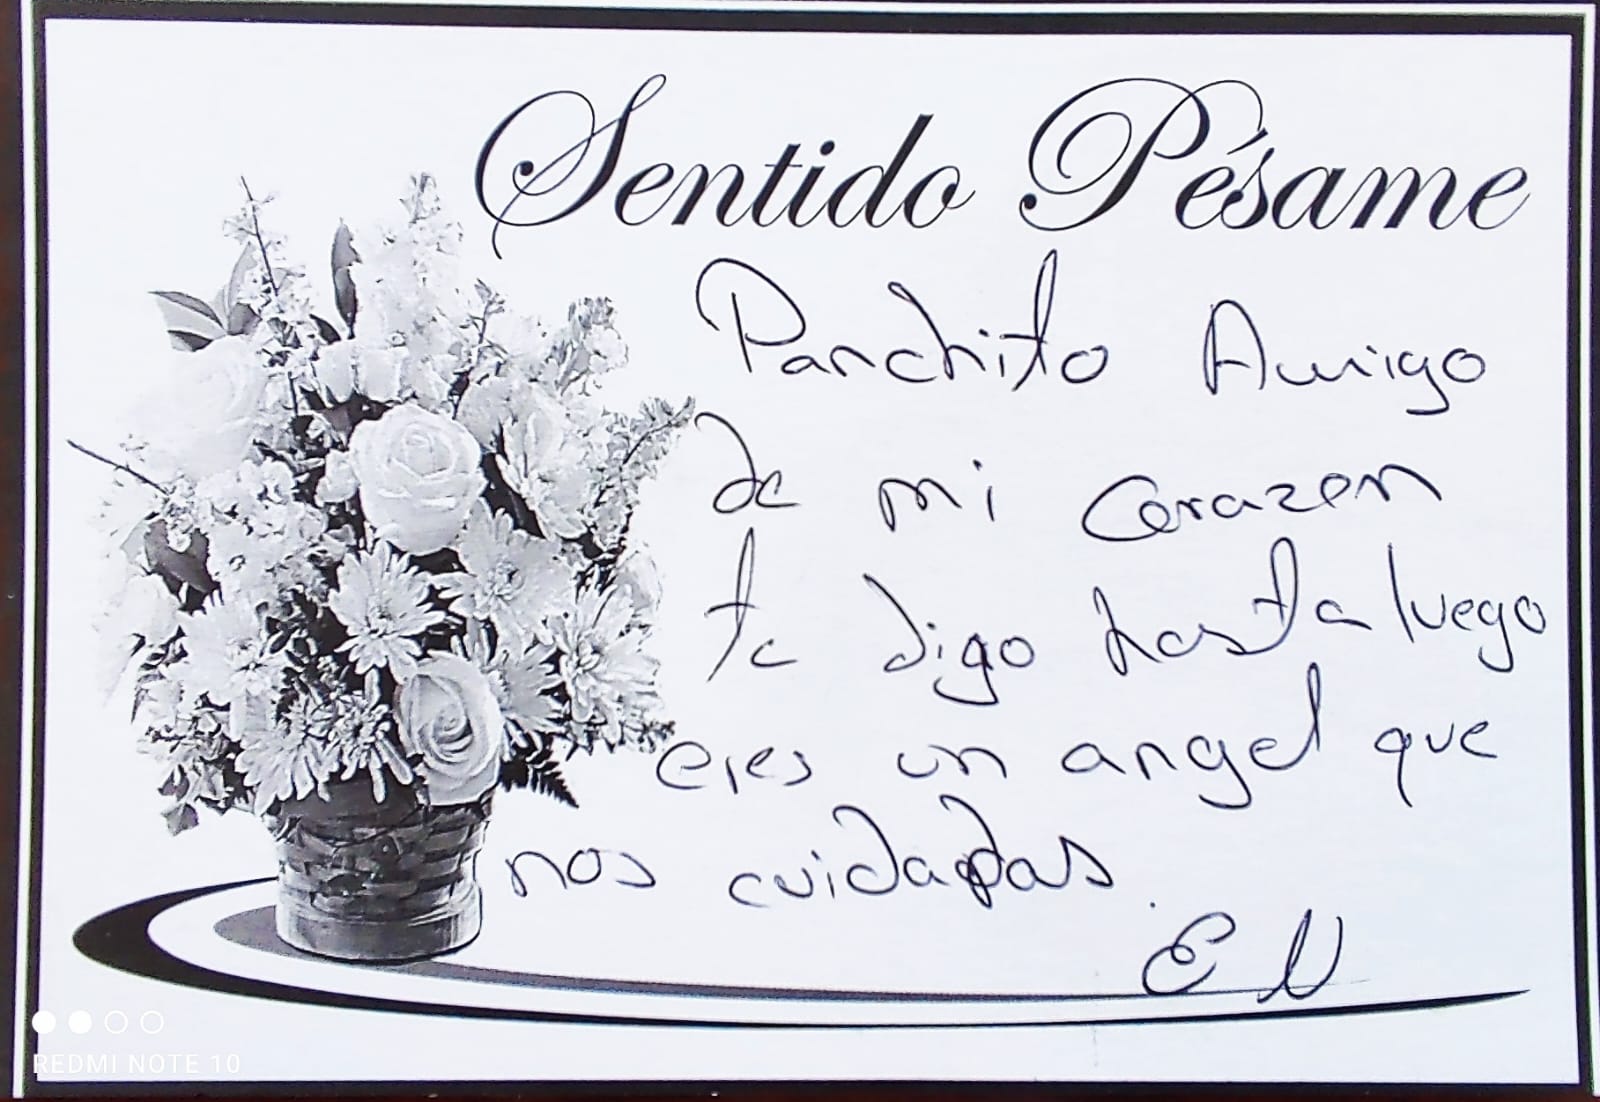 Sentido Pésame
Panchito Amigo
de mi Corazon
te digo hasta luego
eres un angel que
nos cuidadas.
E N
REDMI NOTE 10